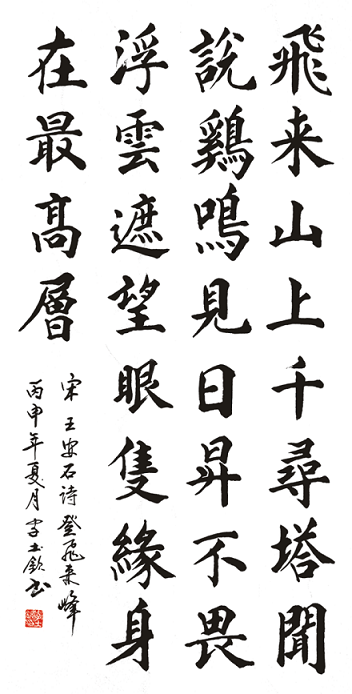 飛来山上千尋塔聞
說鷄鳴見日昇不畏
浮雲遮望眼隻緣身
在最髙層
宋王安石诗登飛来峰
丙申年夏月李士钦书